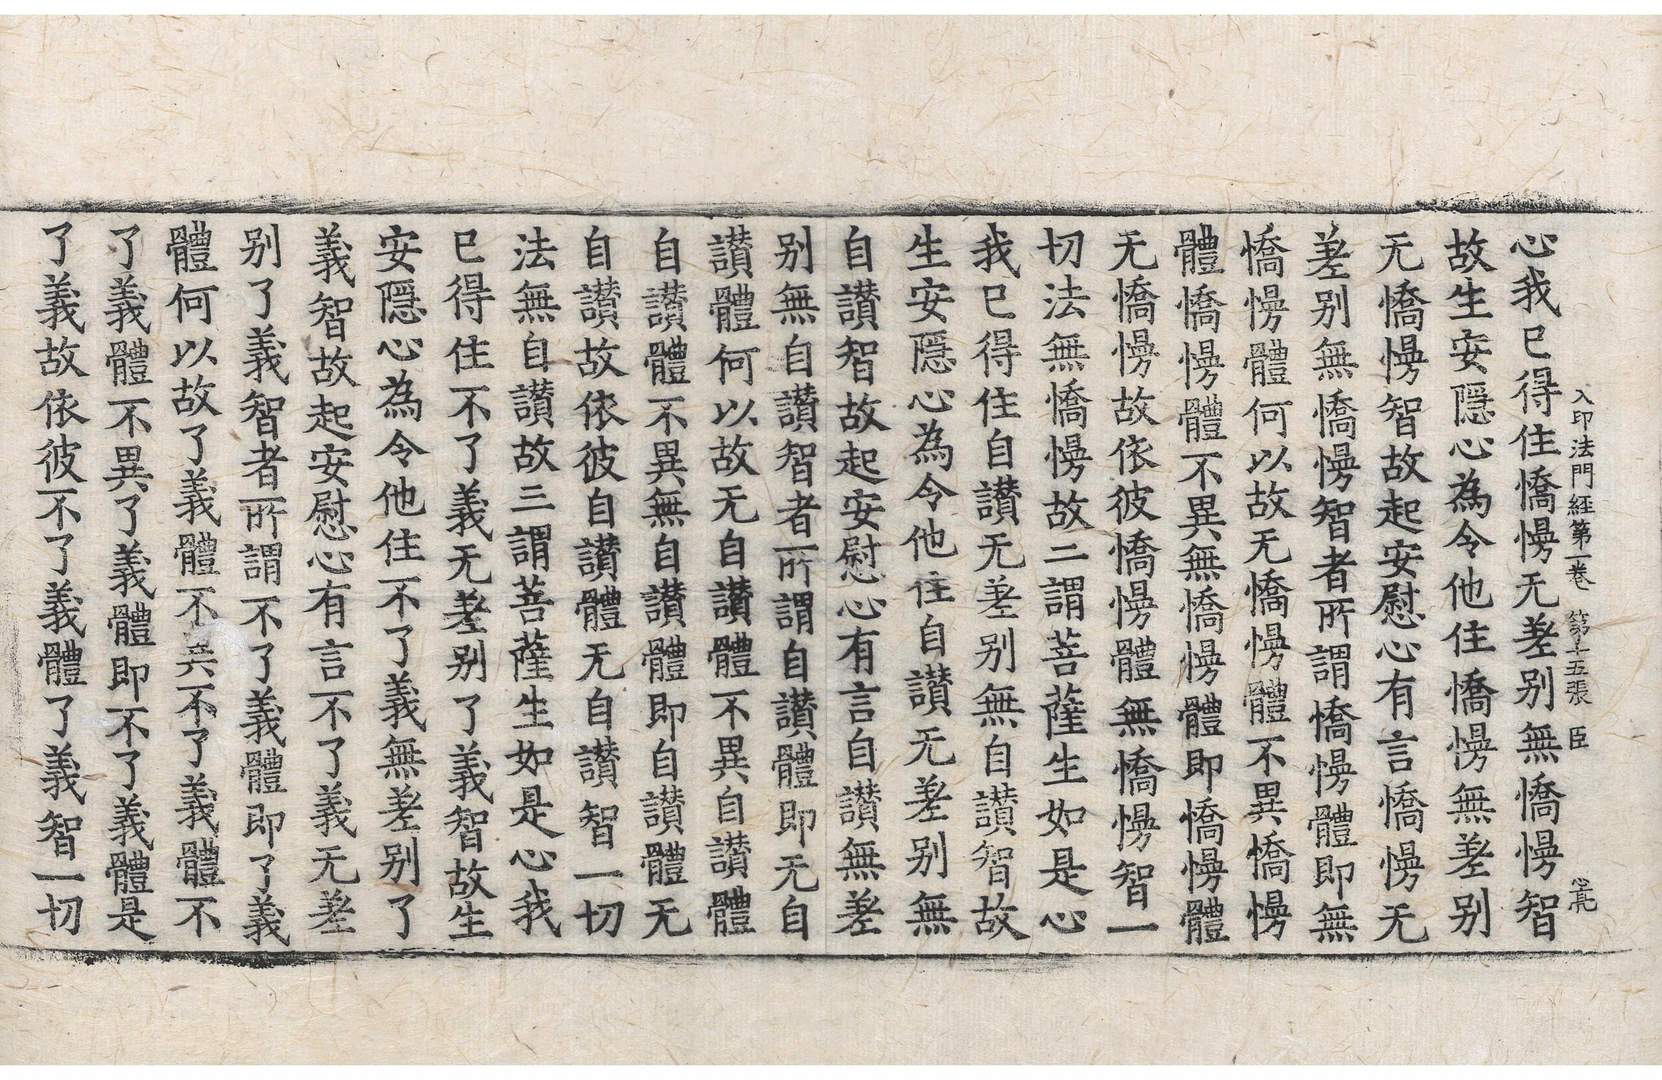 入印法門經第一卷 第十五張 臣
心我已得住憍慢无差别無憍慢智
故生安隱心為令他住憍慢無差别
无憍慢智故起安慰心有言憍慢无
差别無憍慢智者所謂憍慢體即無
憍慢體何以故无憍慢體不異憍慢
體憍慢體不異無憍慢體即憍慢體
无憍慢故依彼憍慢體無憍慢智一
切法無憍慢故二謂菩薩生如是心
我已得住自讃无差别無自讃智故
生安隱心為令他住自讃无差别無
自讃智故起安慰心有言自讃無差
别無自讃智者所謂自讃體即无自
讃體何以故无自讃體不異自讃體
自讃體不異無自讃體即自讃體无
自讃故依彼自讃體无自讃智一切
法無自讃故三謂菩薩生如是心我
已得住不了義无差别了義智故生
安隱心為令他住不了義無差别了
義智故起安慰心有言不了義无差
别了義智者所謂不了義體即了義
體何以故了義體不異不了義體不
了義體不異了義體即不了義體是
了義故依彼不了義體了義智一切